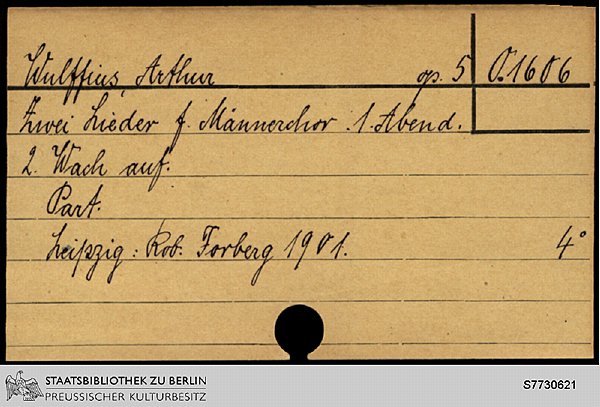 Wulffius, Arthur op. 5 O.1606
Zwei Lieder f. Männerchor. 1. Abend.
2. Wach auf.
Part.
Leipzig: Rob. Forberg 1901. 4°
STAATSBIBLIOTHEK ZU BERLIN
PREUSSISCHER KULTURBESITZ
S7730621